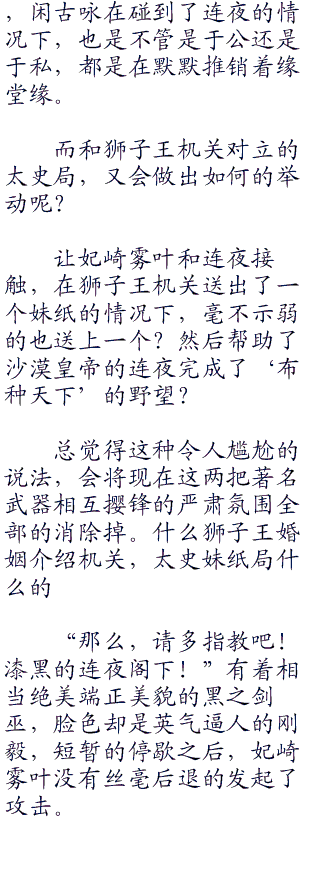 ，闲古咏在碰到了连夜的情
况下，也是不管是于公还是
于私，都是在默默推销着缘
堂缘。
而和狮子王机关对立的
太史局，又会做出如何的举
动呢？
让妃崎雾叶和连夜接
触，在狮子王机关送出了一
个妹纸的情况下，毫不示弱
的也送上一个？然后帮助了
沙漠皇帝的连夜完成了‘布
种天下’的野望？
总觉得这种令人尴尬的
说法，会将现在这两把著名
武器相互撄锋的严肃氛围全
部的消除掉。什么狮子王婚
姻介绍机关，太史妹纸局什
么的
“那么，请多指教吧！
漆黑的连夜阁下！”有着相
当绝美端正美貌的黑之剑
巫，脸色却是英气逼人的刚
毅，短暂的停歇之后，妃崎
雾叶没有丝毫后退的发起了
攻击。